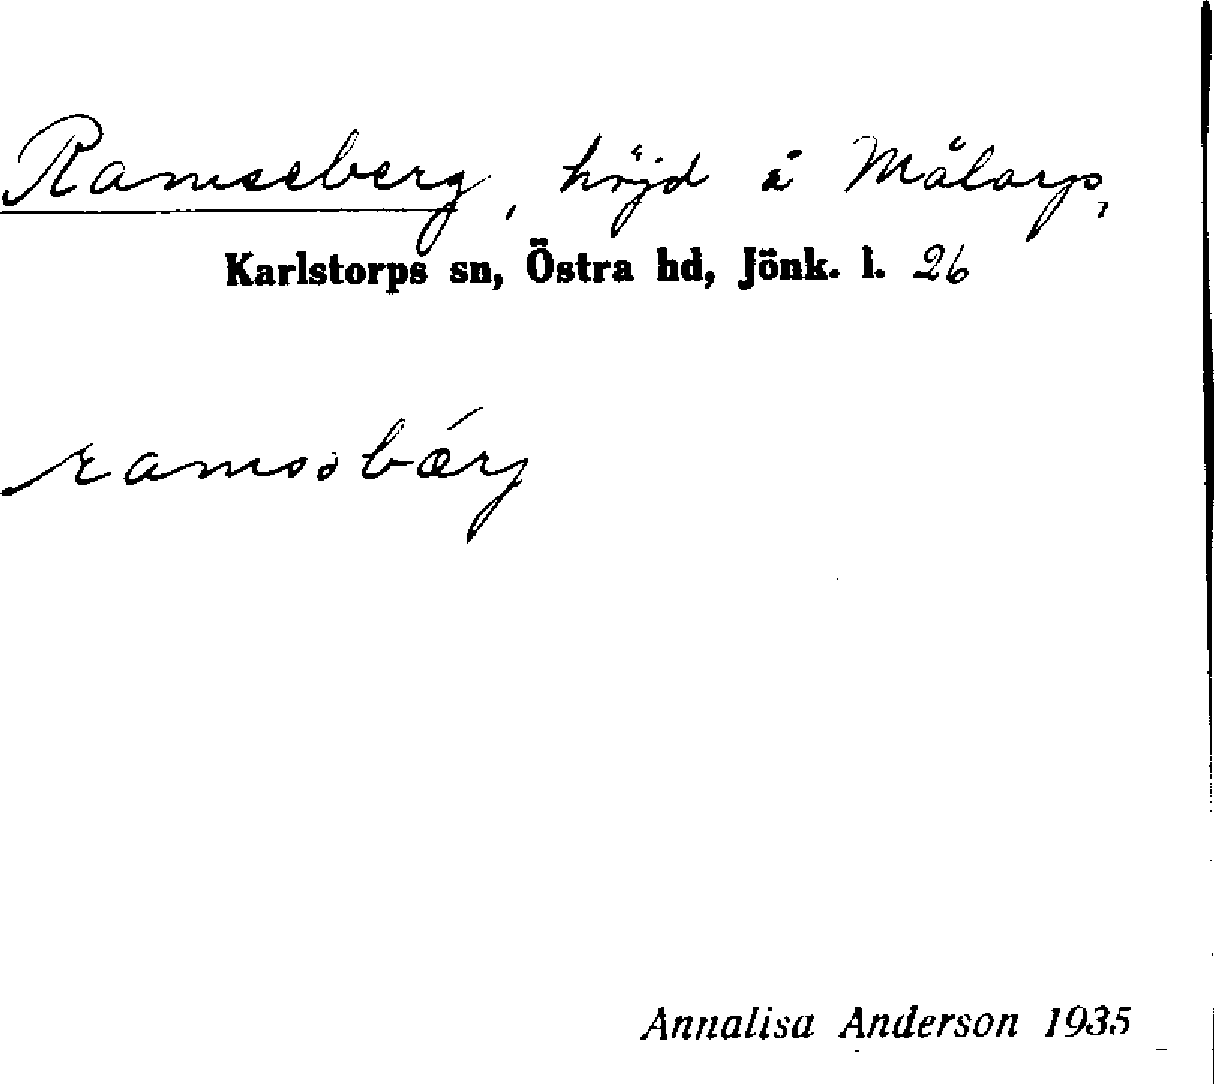 Ramseberg, höjd å Målarp,
Karlstorps sn, Östra hd, Jönk. l. 26
ramsobǽrj
Annalisa Anderson 1935